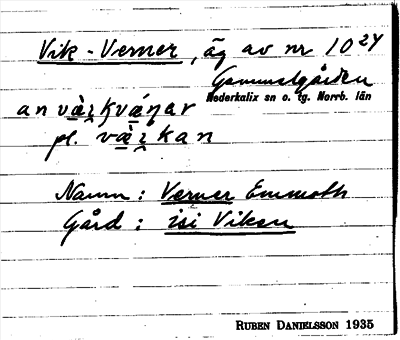 Vik-Verner, äg av nr 10²⁴
Gammelgården
Nederkalix sn o. tg. Norrb. län
an
pl.
Namn: Verner Emmoth
Gård: isi Viken
RUBEN DANIELSSON 1935